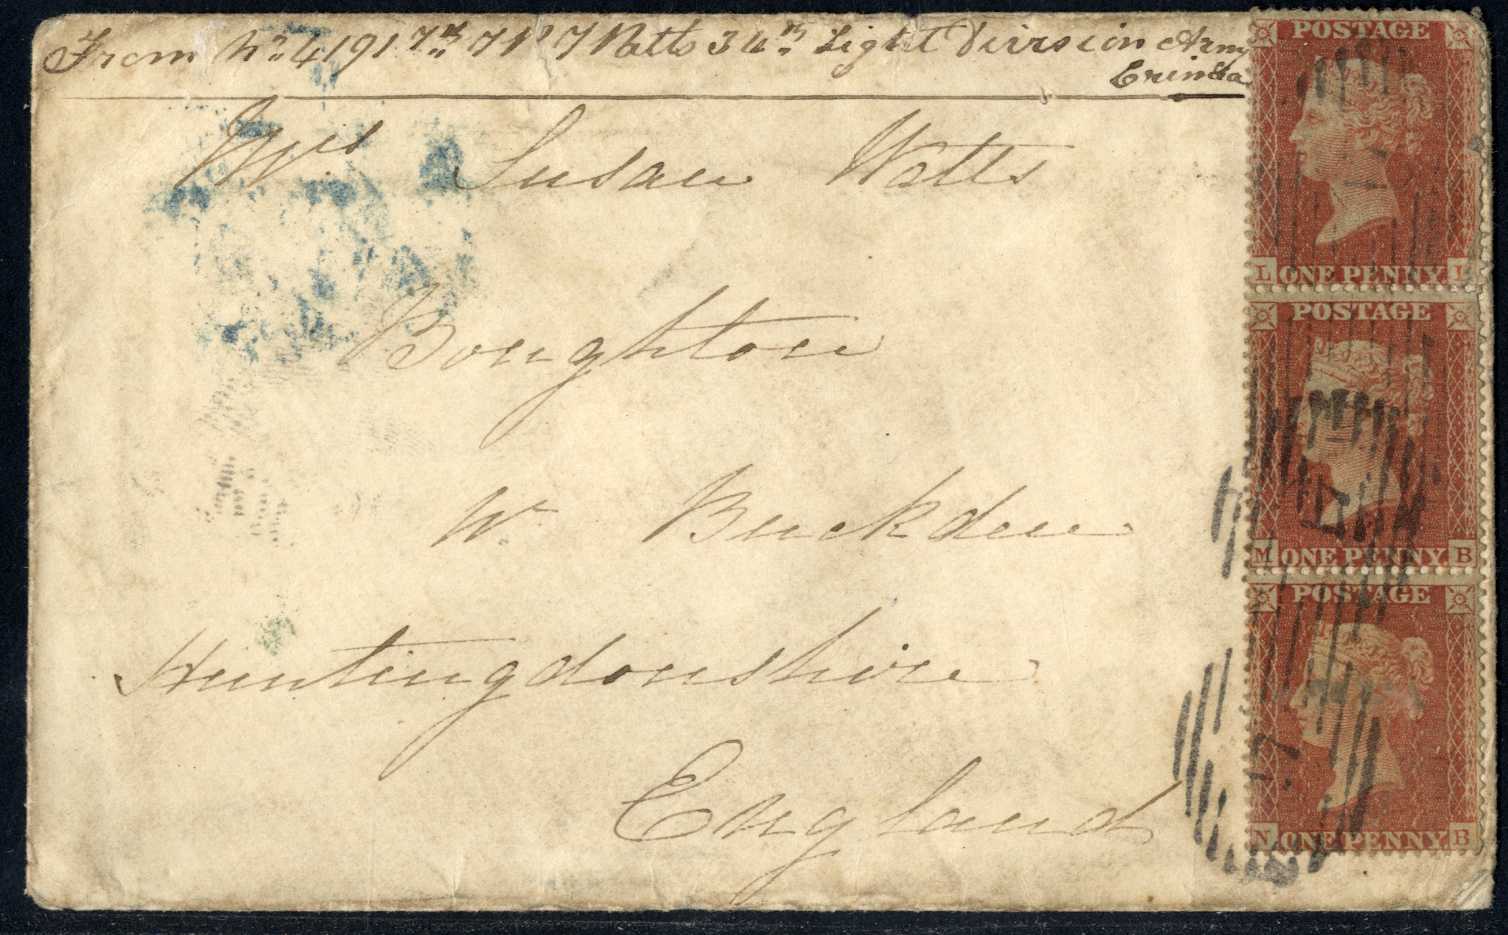 From No 4191 7th 7 Watts 34th Light Divirsion Army
Crimea
Mrs Susan Watts
Boughton
Nr Buckden
Huntingdonshire
England
POSTAGE
L ONE PENNY L
POSTAGE
M ONE PENNY B
POSTAGE
N ONE PENNY B